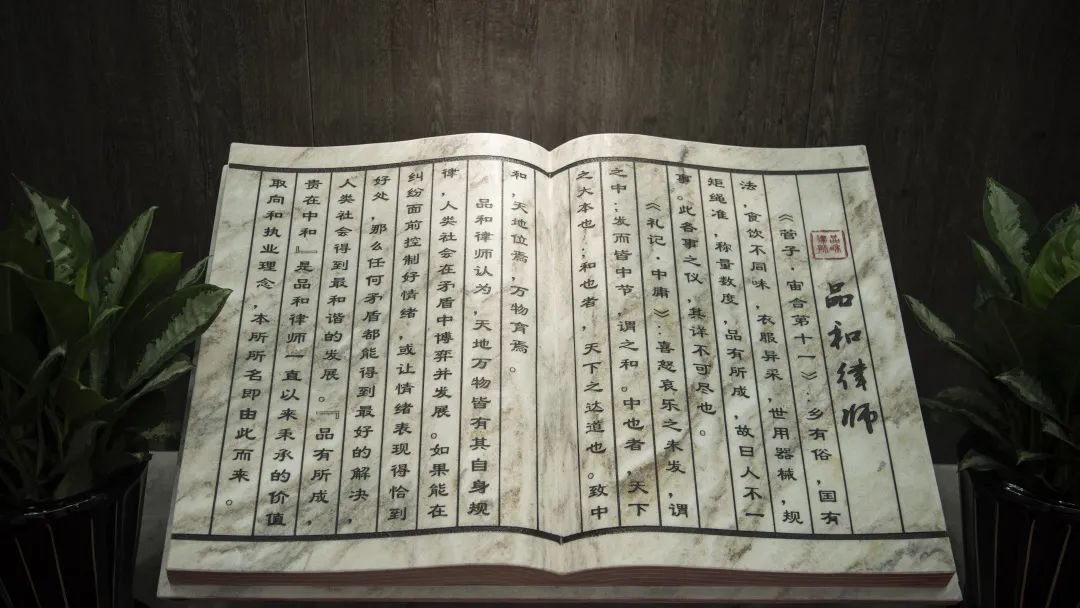 品和律师
《管子，宙合第十一》：乡有俗，国有
法，食饮不同味，衣服异采，世用器械，规
矩绳准，称量数度，品有所成，故曰人不一
事。此各事之仪，其详不可尽也。
《礼记，中庸》：喜怒哀乐之未发，谓
之中；发而皆中节，谓之和。中也者，天下
之大本也；和也者，天下之达道也。致中
和，天地位焉，万物育焉。
品和律师认为，天地万物皆有其自身规
律，人类社会在矛盾中博弈并发展。如果能在
纠纷面前控制好情绪，或让情绪表现得恰到
好处，那么任何矛盾都能得到最好的解决，
人类社会得到最和谐的发展。『品有所成，
贵在中和』是品和律师一直以来秉承的价值
取向和执业理念，本所所名即由此而来。